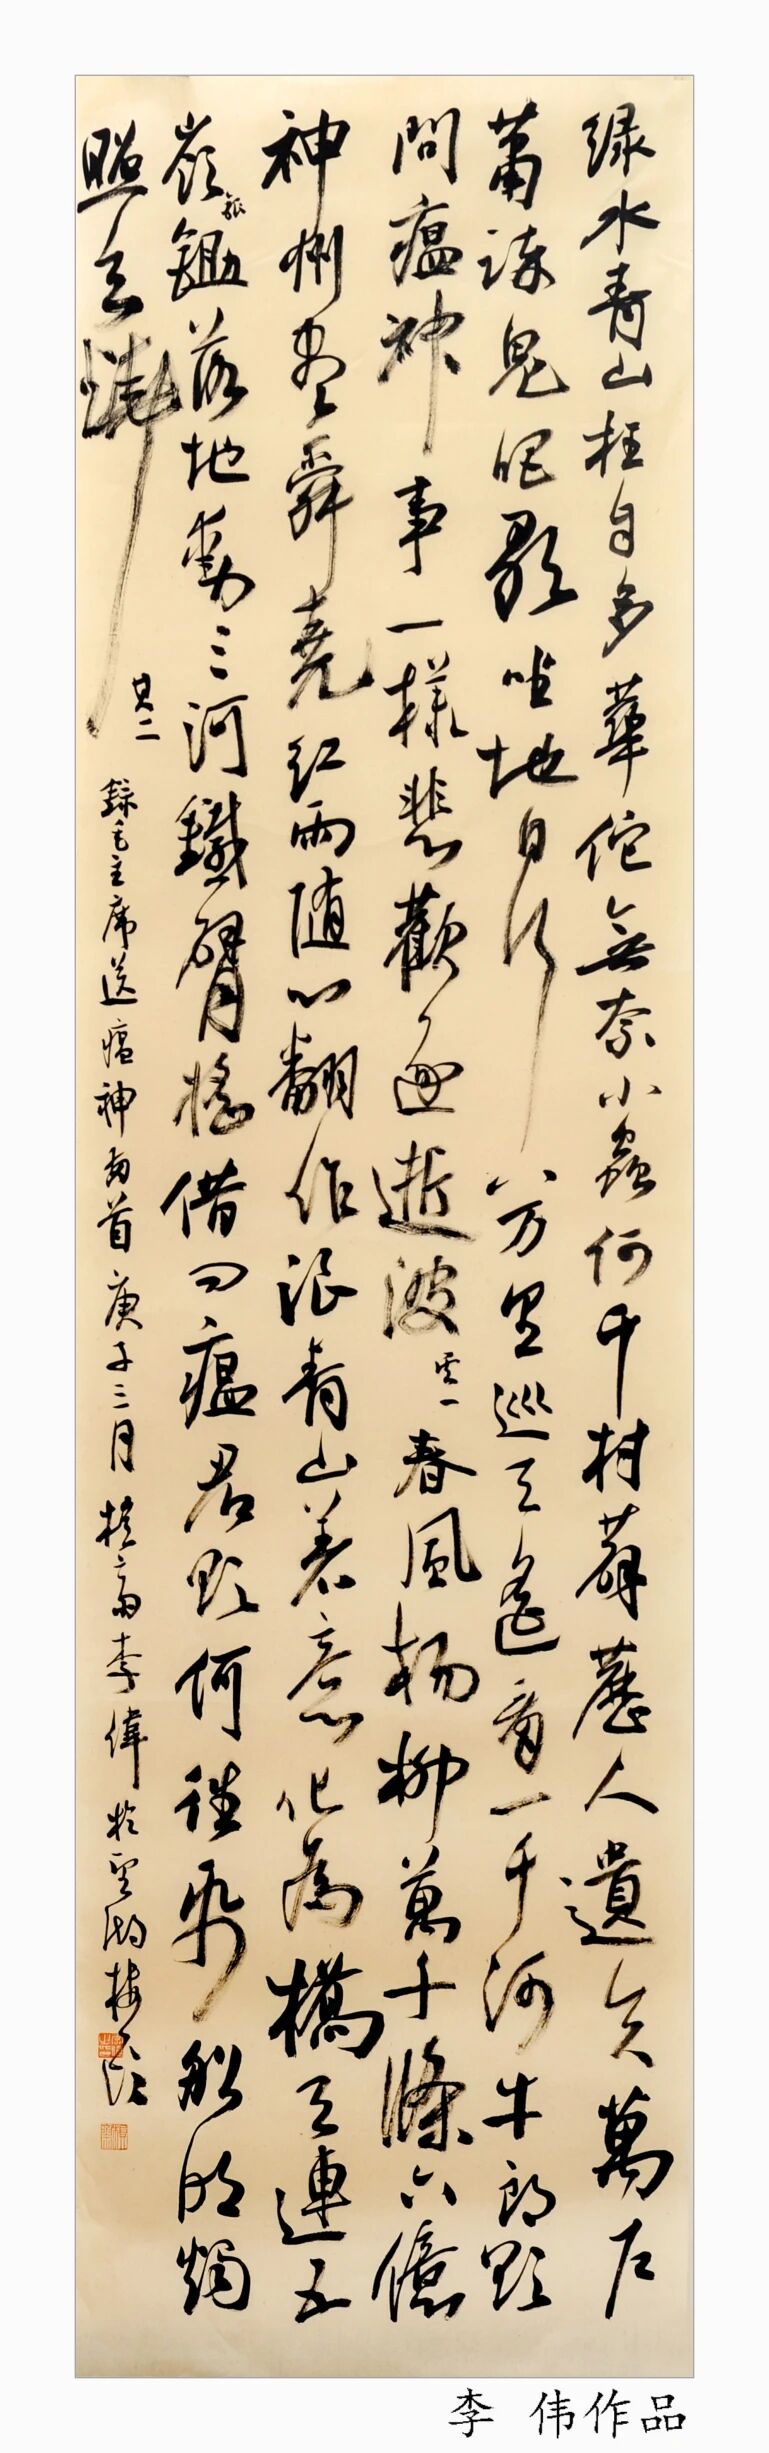 绿水青山枉自多華佗無奈小蟲何千村薜藶人遺矢萬戶
蕭疎鬼唱歌坐地日行八万里巡天遙看一千河牛郎欲
問瘟神事一樣悲歡逐逝波 其一 春風楊柳萬千條六億
神州盡舜堯紅雨随心翻作浪青山着意化為橋天連五
嶺銀鋤落地動三河鐵臂搖借问瘟君欲何往紙船明燭
照天燒 其二
録毛主席送瘟神两首庚子三月 李偉於
李 伟作品